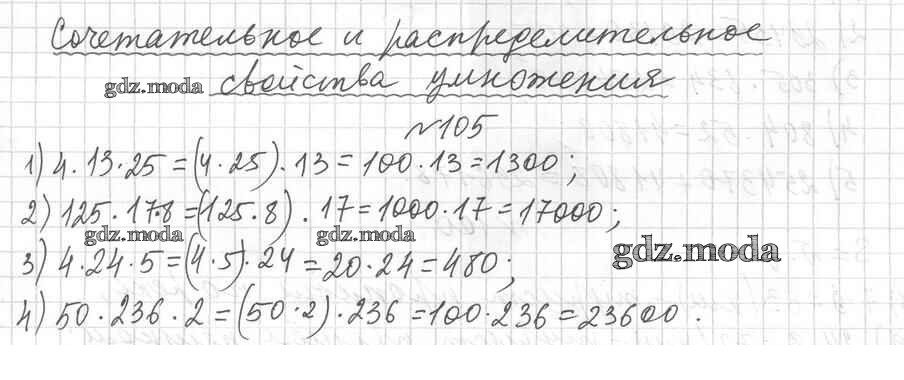 Сочетательное и распределительное
gdz.moda свойства умножения
№105
1) 4·13·25 = (4·25)·13 = 100·13 = 1300;
2) 125·17·8 = (125·8)·17 = 1000·17 = 17000;
gdz.moda gdz.moda gdz.moda
3) 4·24·5 = (4·5)·24 = 20·24 = 480;
4) 50·236·2 = (50·2)·236 = 100·236 = 23600.